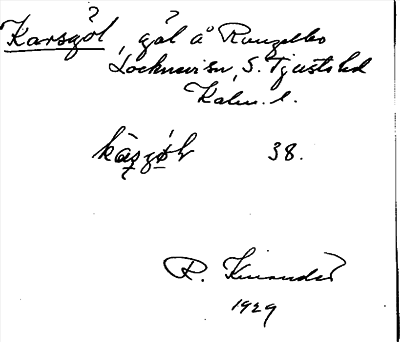 Karsgöl, göl å Rungelbo
Locknevi sn, S. Tjusts hd
Kalm. l.
kạ̈sgö̀l 38.
R. Kinander
1929